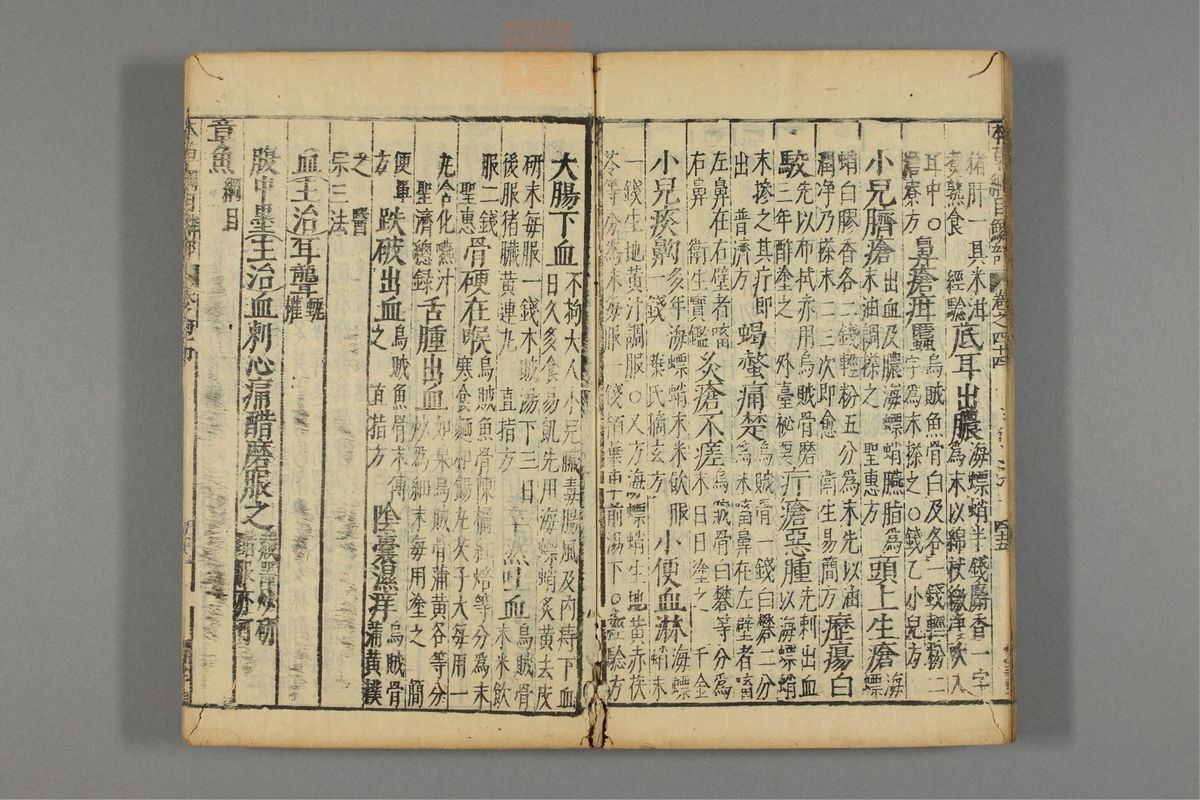 猪肝一具米泔
煮熟食　經驗
底耳出膿
海螵蛸半錢麝香一字
為末以綿杖繳淨吹入
耳中○
鼻瘡疳䘌
烏賊魚骨白及各一錢輕粉二
字為末搽之○錢乙小兒方
小兒臍瘡
出血及膿海螵蛸臙脂為
末油調搽之　聖惠方
頭上生瘡
海螵
蛸白膠香各二錢輕粉五分為末先以油
潤淨乃搽末二三次即愈　衛生易簡方
癧瘍白
駮
先以布拭赤用烏賊骨磨
三年酢塗之　外臺祕要
疔瘡惡腫
先刺出血
以海螵蛸
末摻之其疔即
出　普濟方
蝎螫痛楚
烏賊骨一錢白礬二分
為末㗜鼻在左壁者㗜
左鼻在右壁者㗜
右鼻　衛生寶鑑
灸瘡不瘥
烏賊骨白礬等分為
末日日塗之　千金
小兒痰齁
多年海螵蛸末米飲服
一錢　葉氏摘玄方
小便血淋
海螵
蛸末
一錢生地黃汁調服○又方海螵蛸生地黃赤茯
苓等分為末每服一錢柏葉車前湯下○經驗方
大腸下血
不拘大人小兒臟毒腸風及內痔下血
日久多食易飢先用海螵蛸炙黃去皮
研末每服一錢木賊湯下三日
後服猪臟黃連丸　直指方
卒然吐血
烏賊骨
末米飲
服二錢
聖惠
骨硬在喉
烏賊魚骨陳橘紅焙等分為末
寒食麪和餳丸芡子大每用一
丸含化嚥汁
聖濟總錄
舌腫出血
如泉烏賊骨蒲黃各等分
炒為細末每用塗之　簡
便單
方
跌破出血
烏賊魚骨末傅
之　直指方
陰囊濕痒
烏賊骨
蒲黃撲
之　醫
宗三法
血
主治
耳聾
甄
權
腹中墨
主治
血刺心痛醋磨服之
章魚
綱
目